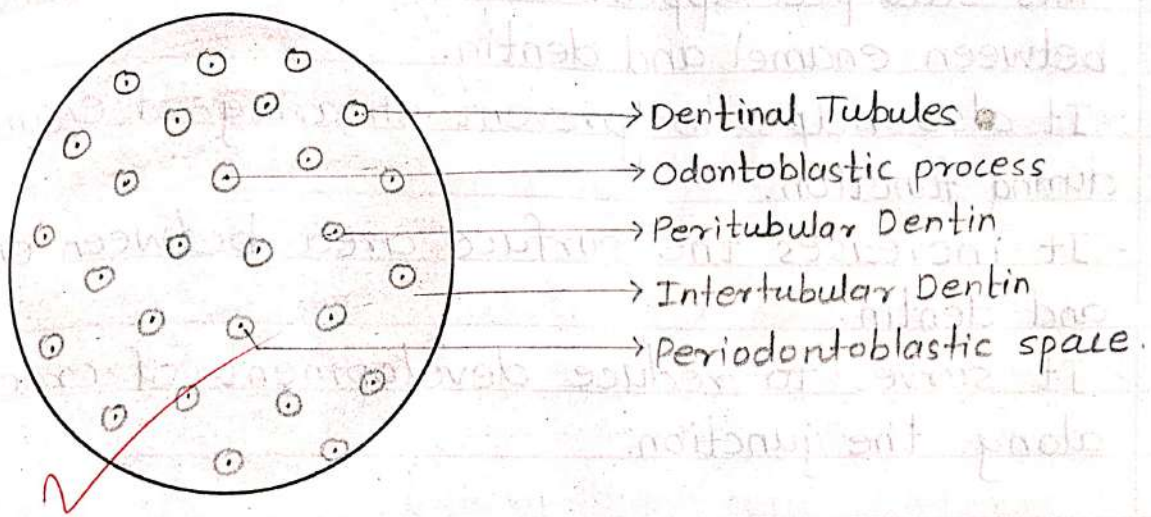 Dentinal Tubules
Odontoblastic process
Peritubular Dentin
Intertubular Dentin
Periodontoblastic space.